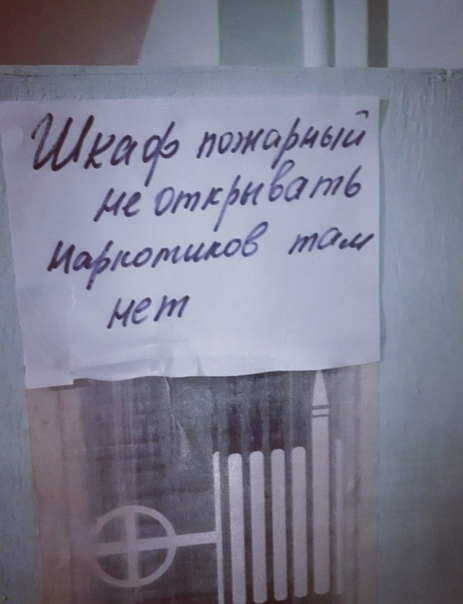 Шкаф пожарный
не открывать
наркотиков там
нет